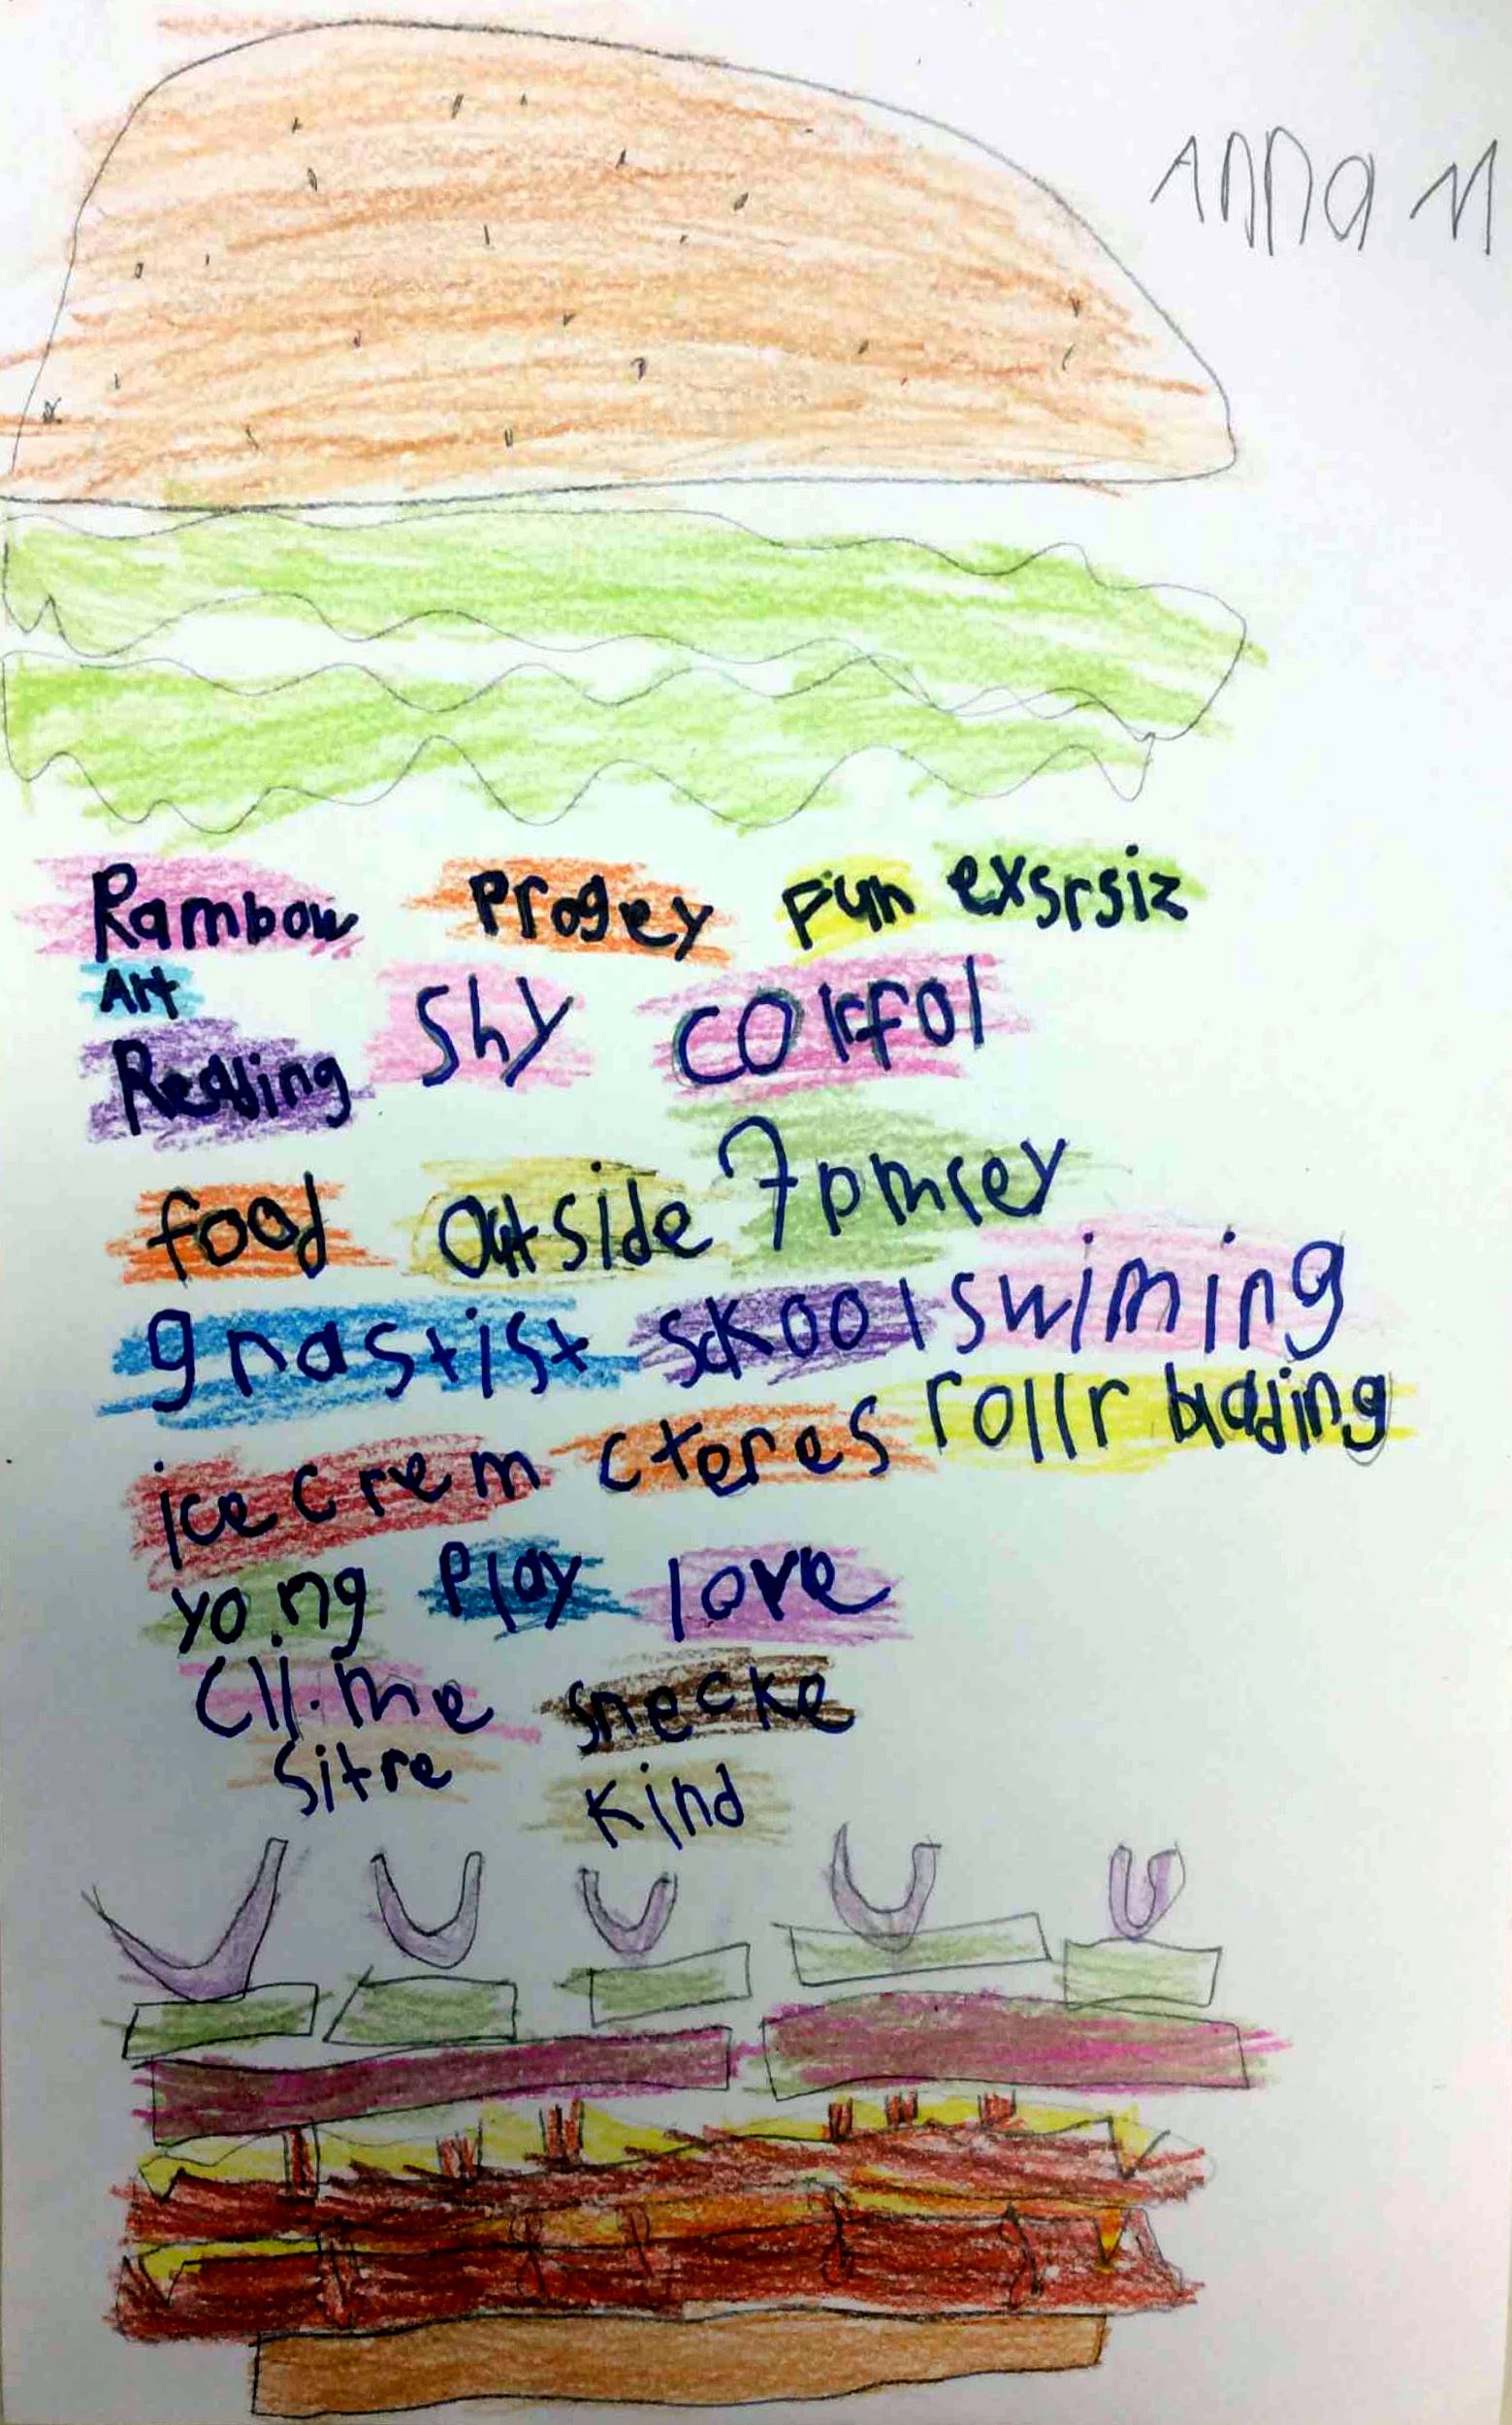 Anna M
Rambow Progey Fun exsrsiz
Art
Reading Shy colrfol
food outside 7 pmrey
gnastist skool swiming
ice crem cteres rollr blading
yong Play love
Cli.me snecke
Sitre Kind